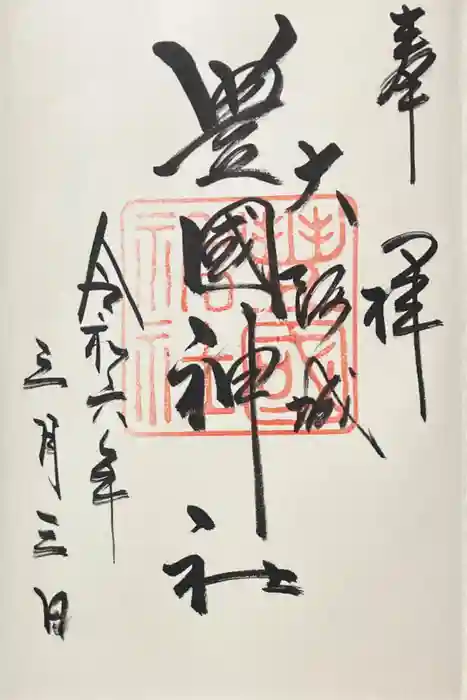 奉拝
大阪城
豊國神社
令和六年
三月三日
豊國神社